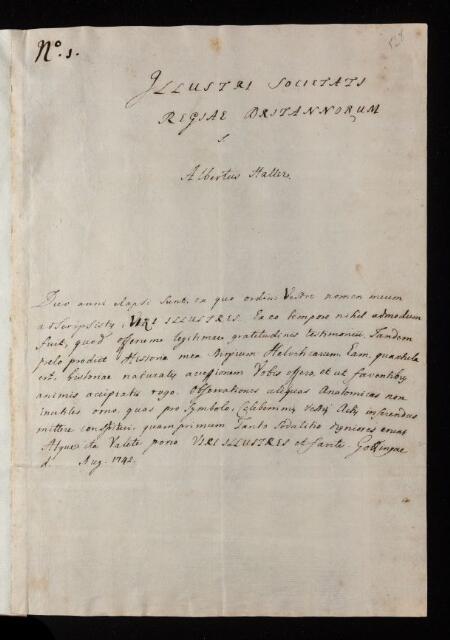 Nº. 1.
ILLUSTRI SOCIETATI
REGIAE BRITANNORUM
S
Albertus Haller.
Duo anni elapsi sunt, ex quo ordini Vestro nomen meum
adscripsistis, VIRI ILLUSTRES. Ex eo tempore nihil admodum
fuit, quod offerrem legitimum gratitudinis testimonium. Tandem
prelo prodiit Historia mea Stirpium Helveticarum. Eam,
est, historiae naturalis accessionem Vobis offero, et ut faventibus
animis accipiatis rogo. Observationes aliquas Anatomicas non
inutiles orno, quas pro Symbolo, Celeberrimis Vestris Actis inserendas
mittere constitui, quamprimum tanto sodalitio digniores erunt
Atque ita Valete porro VIRI ILLUSTRES et favete Gottingae
d. Aug. 1742.